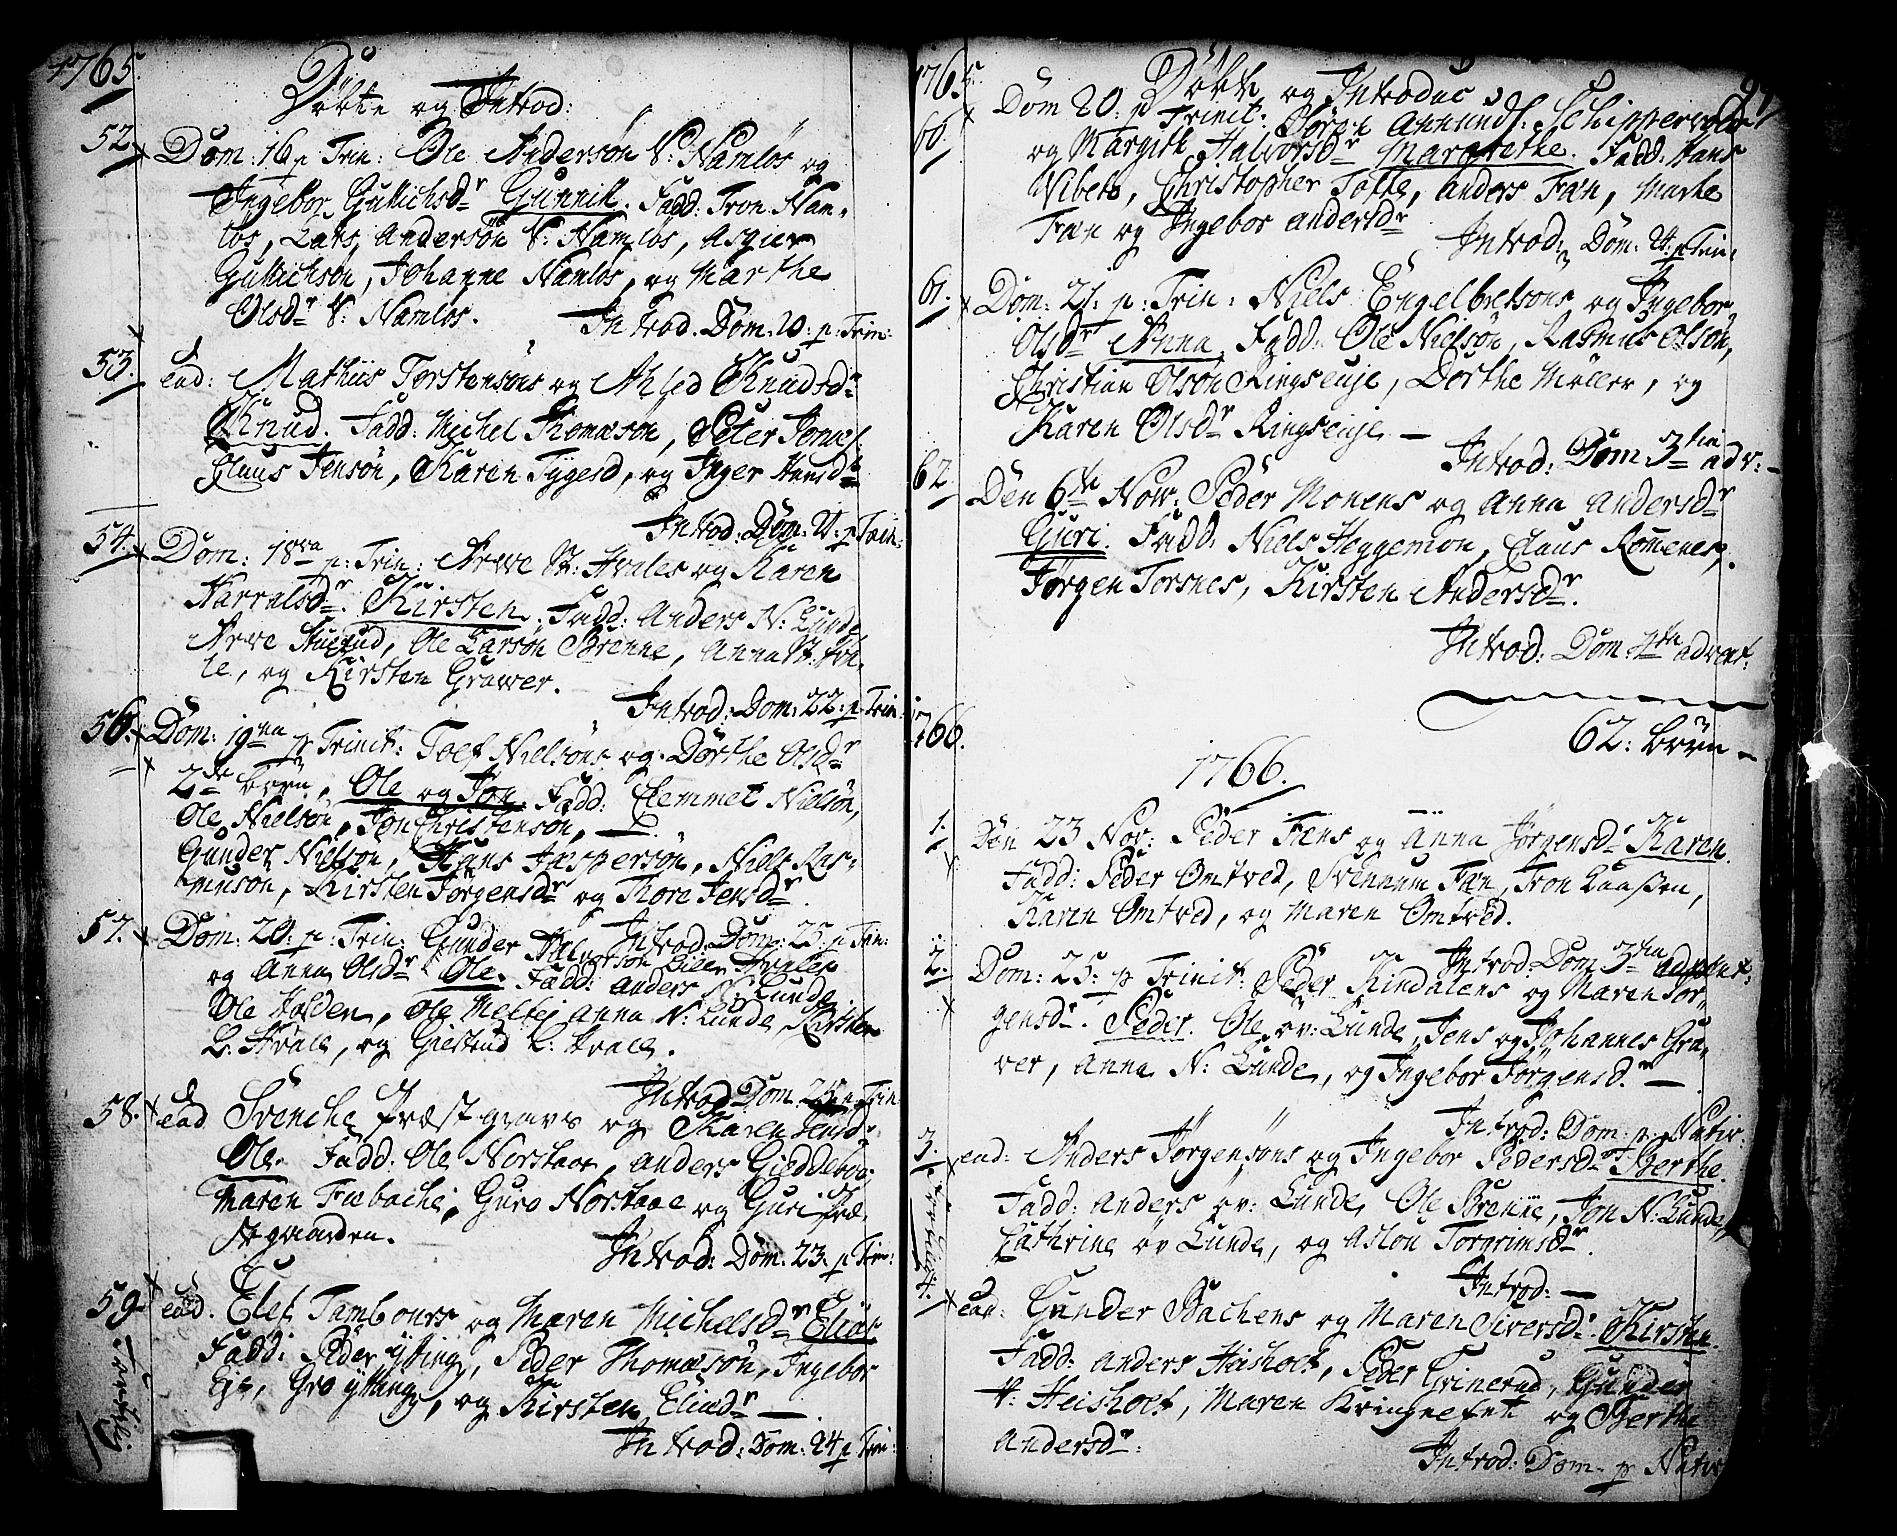 1765.
Döbte og Introd:
52. Dom: 16 p Trin: Ole Andersøn V: Namløs og
Ingebor Gullichsdr Gunnil. Fadd: Tron Nam-
løs, Lars Andersøn V: Namløs, Asgier
Gullichsøn, Johanne Namløs, og Marthe
Olsdr V: Namløs.
Introd. Dom: 20: p: Trin:
53. ead: Mathiis Torstensøns og Ahled Knudsdr
Knud. Fadd: Michel Thomæsøn, Peter Jons:
Claus Jensøn, Karen Tygesd, og Inger Hansdr
Introd: Dom: 21: p Trin:
54. Dom: 18va p: Trin: Arve St: Hvales og Karen
Harralsdr. Kirsten. Fadd: Anders N: Lunde
Arve Stuerud, Ole Larsøn Brenne, Anna St: Hva-
le, og Kirsten Graver.
Introd: Dom: 22: p Trin:
56. Dom: 19na p Trinit: Toef Nielsøns og Dorthe Olsdr
2de børn, Ole og Jon Fadd: Clemmet Nielsøn,
Ole Nielsøn, Jon Christensøn, —
Gunder Nielsøn, Hans Jaspersøn, Niels Ras-
musøn, Kirsten Jørgensdr og Thore Jensdr.
Introd: Dom: 25: p Trin:
57. Dom: 20: p: Trin: Gunder Halvorsøn Lille Hvales
og Anna Olsdr Ole. Fadd: Anders N: Lunde
Ole Holden, Ole Melbi, Anna N: Lunde, Kirsten
L: Hvale, og Giertrud L: Hvale.
Introd Dom: 25 p Trin
58. ead Svenche Præstgaars og Karen Jensdr
Ole. Fadd: Ole Norstaae, Anders Gieddeboe,
Maren Fæbache, Guro Norstaae og Guri Præ-
stgaarden.
Introd: Dom: 23. p Trin:
59 ead. Elef Tambours og Maren Michelsdr Elias
Fadd: Peder ytting, Peder Thomæsøn, Ingebor
Eje, Gro ytting, og Kirsten Eliædr —.
Introd: Dom: 24 p Trin:
1765
Döbte og Introduc
60. Dom 20: p Trinit: Sören Annunds: Schippervold
og Margith Halvorsdr Margrethe. Fadd: Hans
Vibeto, Christopher Totte, Anders Fæn, Marthe
Fæn og Ingebor Andersdr
Introd: Dom: 24: p Trin:
61. Dom: 21: p: Trin: Niels Engelbretsøns og Ingebor
Olsdr Anna Fadd: Ole Nielsøn, Rasmus Olsøn,
Christian Olsøn Ringseuje, Dorthe Møller, og
Karen Olsdr Ringseuje —
Introd: Dom 3tia adv: —
62. Den 6te Nov: Peder Monens og Anna Andersdr
Guri. Fadd: Niels Heggemon, Claus Romenes,
Jörgen Torsnes, Kirsten Andersdr.
Introd: Dom 4ta advent:
62: børn —
1766.
1766.
1. Den 23 Nov: Peder Fæns og Anna Jörgensdr Karen.
Fadd: Peder Omtved, Svennum Fæn, Tron Laaßen,
Karen Omtved, og Maren Omtved.
Introd: Dom 3tia advent:
2. Dom: 25: p Trinit: Peder Rindalens og Maren Jör-
gensdr. Peder. Ole öv: Lunde, Jens og Johannes Gra-
ver, Anna N: Lunde, og Ingebor Jörgensd.r —
Introd: Dom: p: Nativ:
3. ead: Anders Jørgensøns og Ingebor Pedersdr Berthe.
Fadd: Anders öv: Lunde, Ole Brenne, Jon N: Lunde,
Cathrine öv Lunde, og Aslou Torgrimsdr.
Introd: —
4. ead: Gunder Bachens og Maren Siversdr. Kirsten.
Fadd: Anders Heisholt, Peder Grinerud, Gunder
V: Heisholt, Maren Kringeltet og Berthe
Andersdr:
Introd: Dom. p Nativ